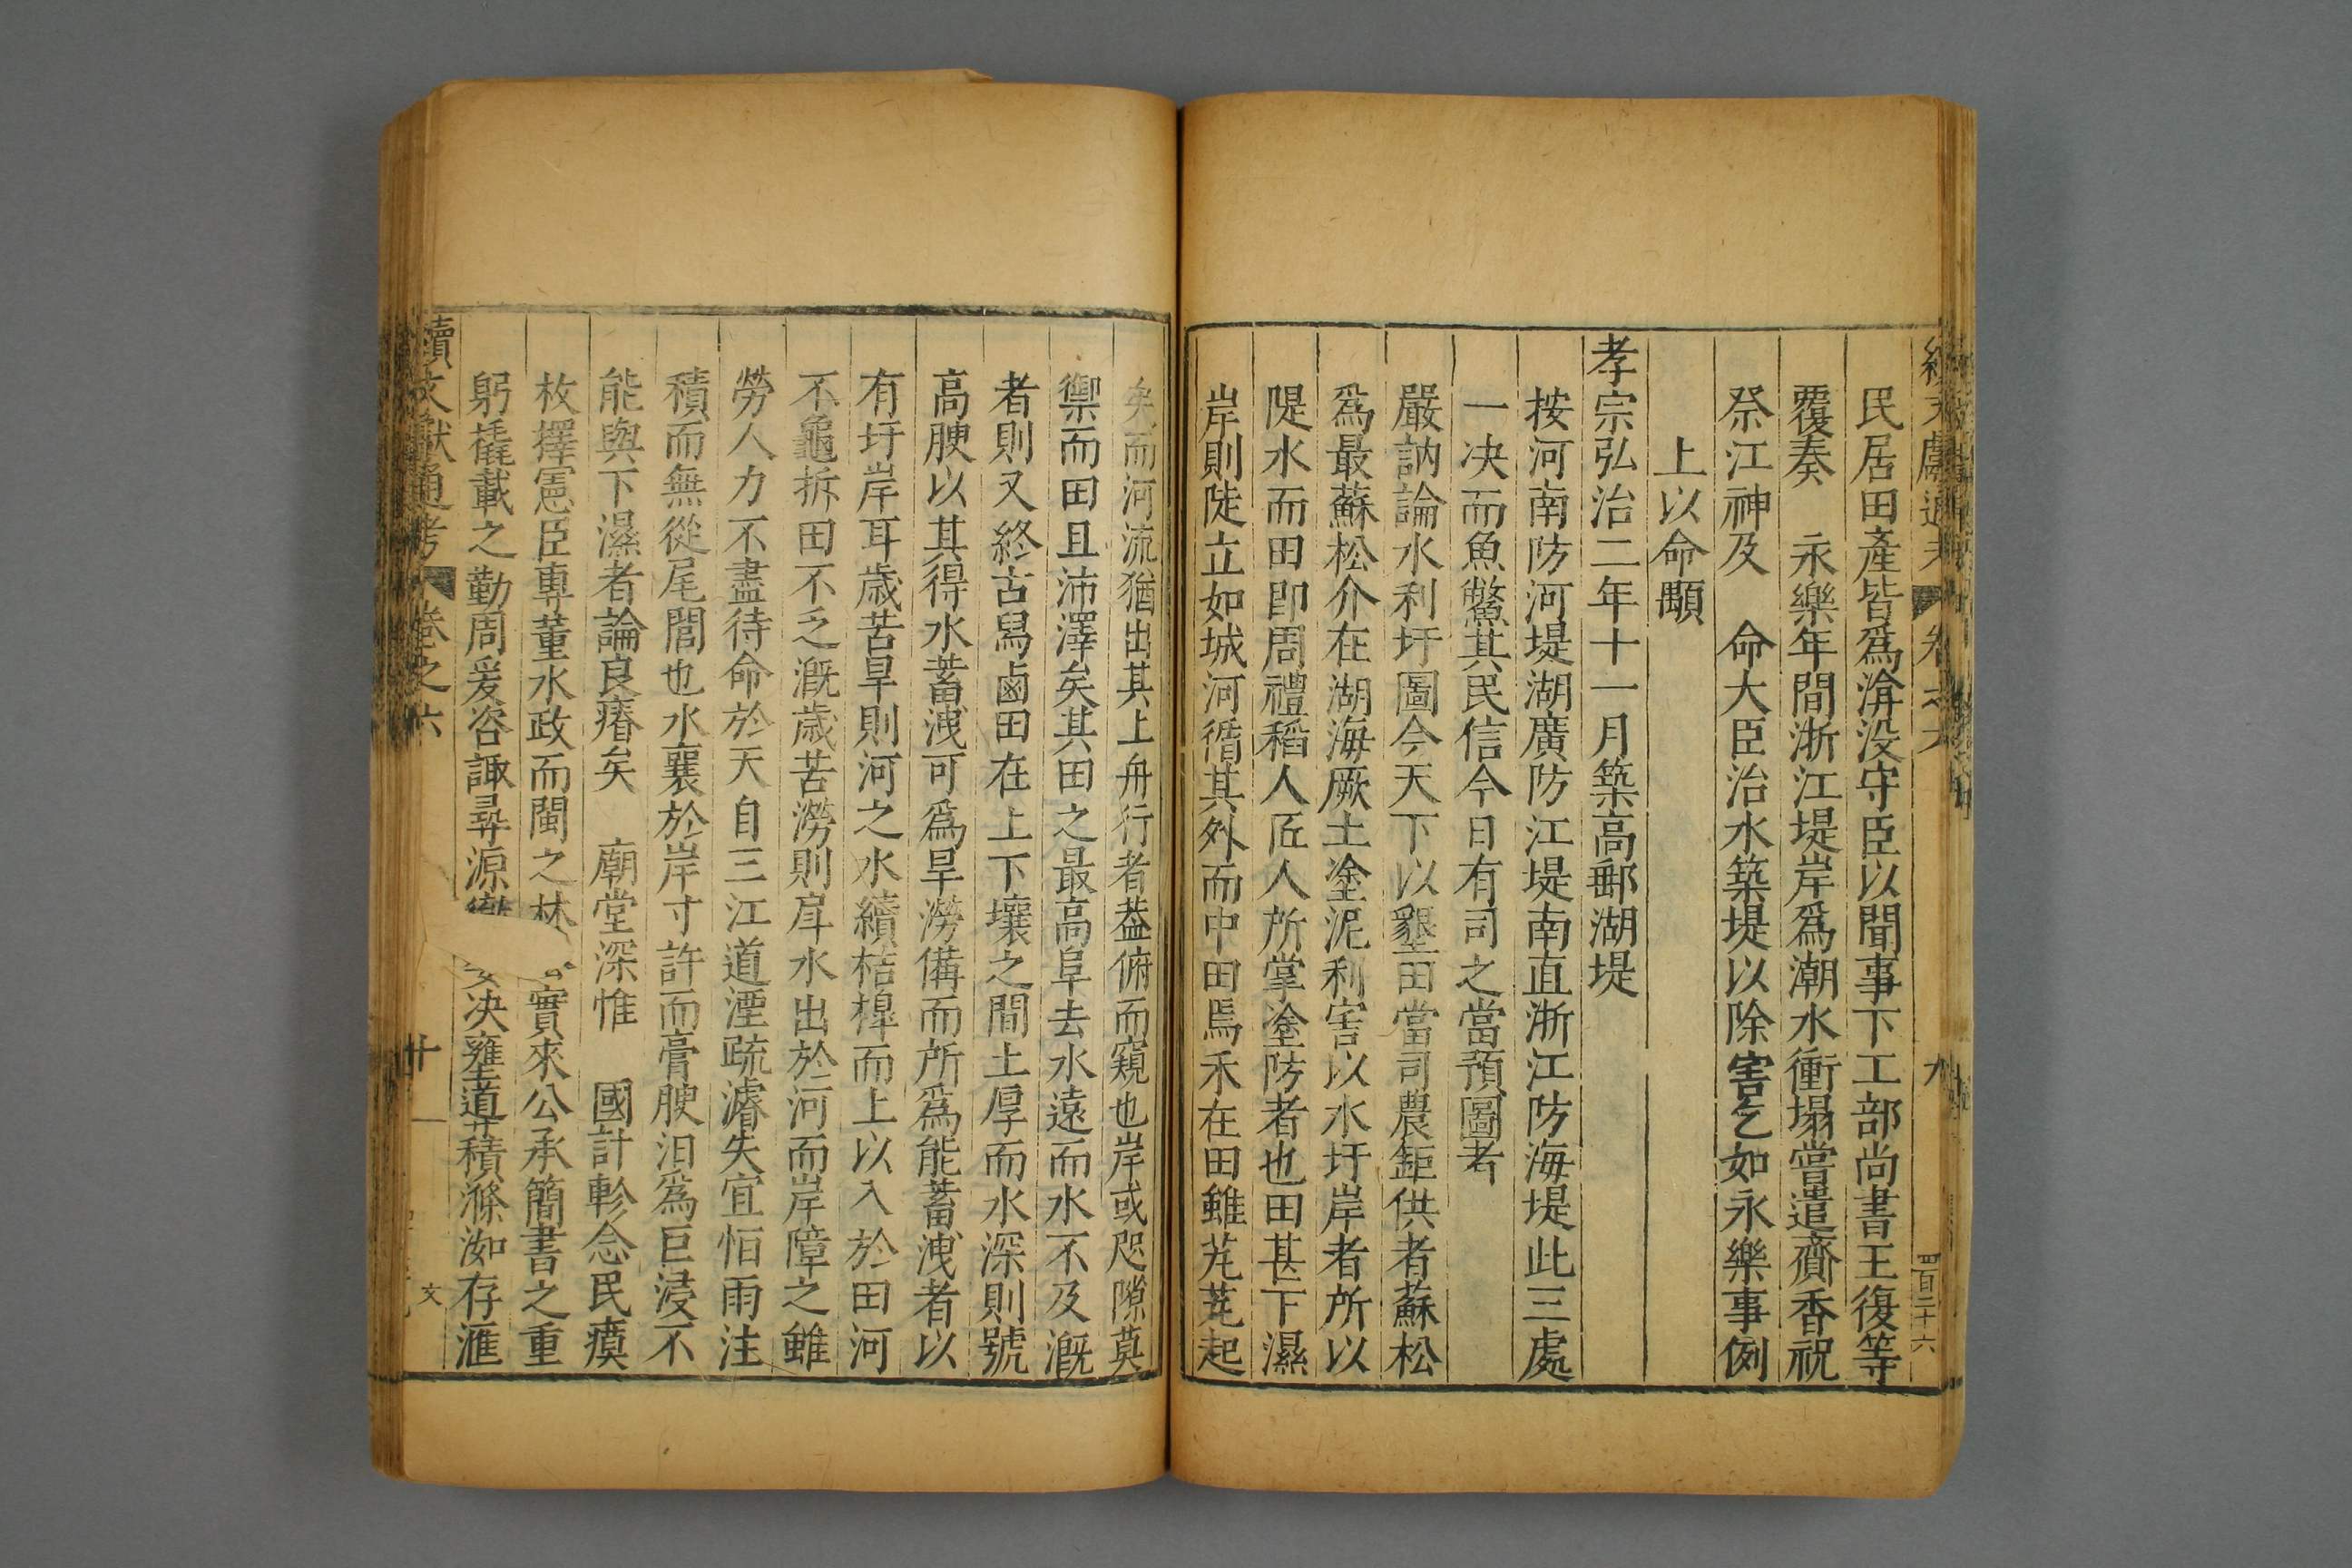 民居田產皆爲渰没守臣以聞事下工部尚書王復等
覆奏　永樂年間浙江堤岸爲潮水衝塌嘗遣齎香祝
祭江神及　命大臣治水築堤以除害乞如永樂事例
上以命顒
孝宗弘治二年十一月築高郵湖堤
按河南防河堤湖廣防江堤南直浙江防海堤此三處
一决而魚鱉其民信今日有司之當預圖者
嚴訥論水利圩圖今天下以墾田當司農鉅供者蘇松
爲最蘇松介在湖海厥土塗泥利害以水圩岸者所以
隄水而田卽周禮稻人匠人所掌塗防者也田甚下濕
岸則陡立如城河循其外而中田焉禾在田雖芃芃起
矣而河流猶出其上舟行者葢俯而窺也岸或咫隙莫
禦而田且沛澤矣其田之最高阜去水遠而水不及漑
者則又終古舃鹵田在上下壤之間土厚而水深則號
高腴以其得水蓄洩可爲旱澇備而所爲能蓄洩者以
有圩岸耳歲苦旱則河之水續桔槹而上以入於田河
不龜拆田不乏漑歲苦澇則戽水出於河而岸障之雖
勞人力不盡待命於天自三江道湮疏濬失宜恒雨注
積而無從尾閭也水襄於岸寸許而膏腴汨爲巨浸不
能與下濕者論良瘠矣　廟堂深惟　國計軫念民瘼
枚擇憲臣專董水政而閩之林　實來公承簡書之重
躬橇載之勤周爰咨諏尋源　决壅導積滌洳存滙
續文獻通考　卷之六　十　文
續文獻通考　卷之六　九　四百二十六